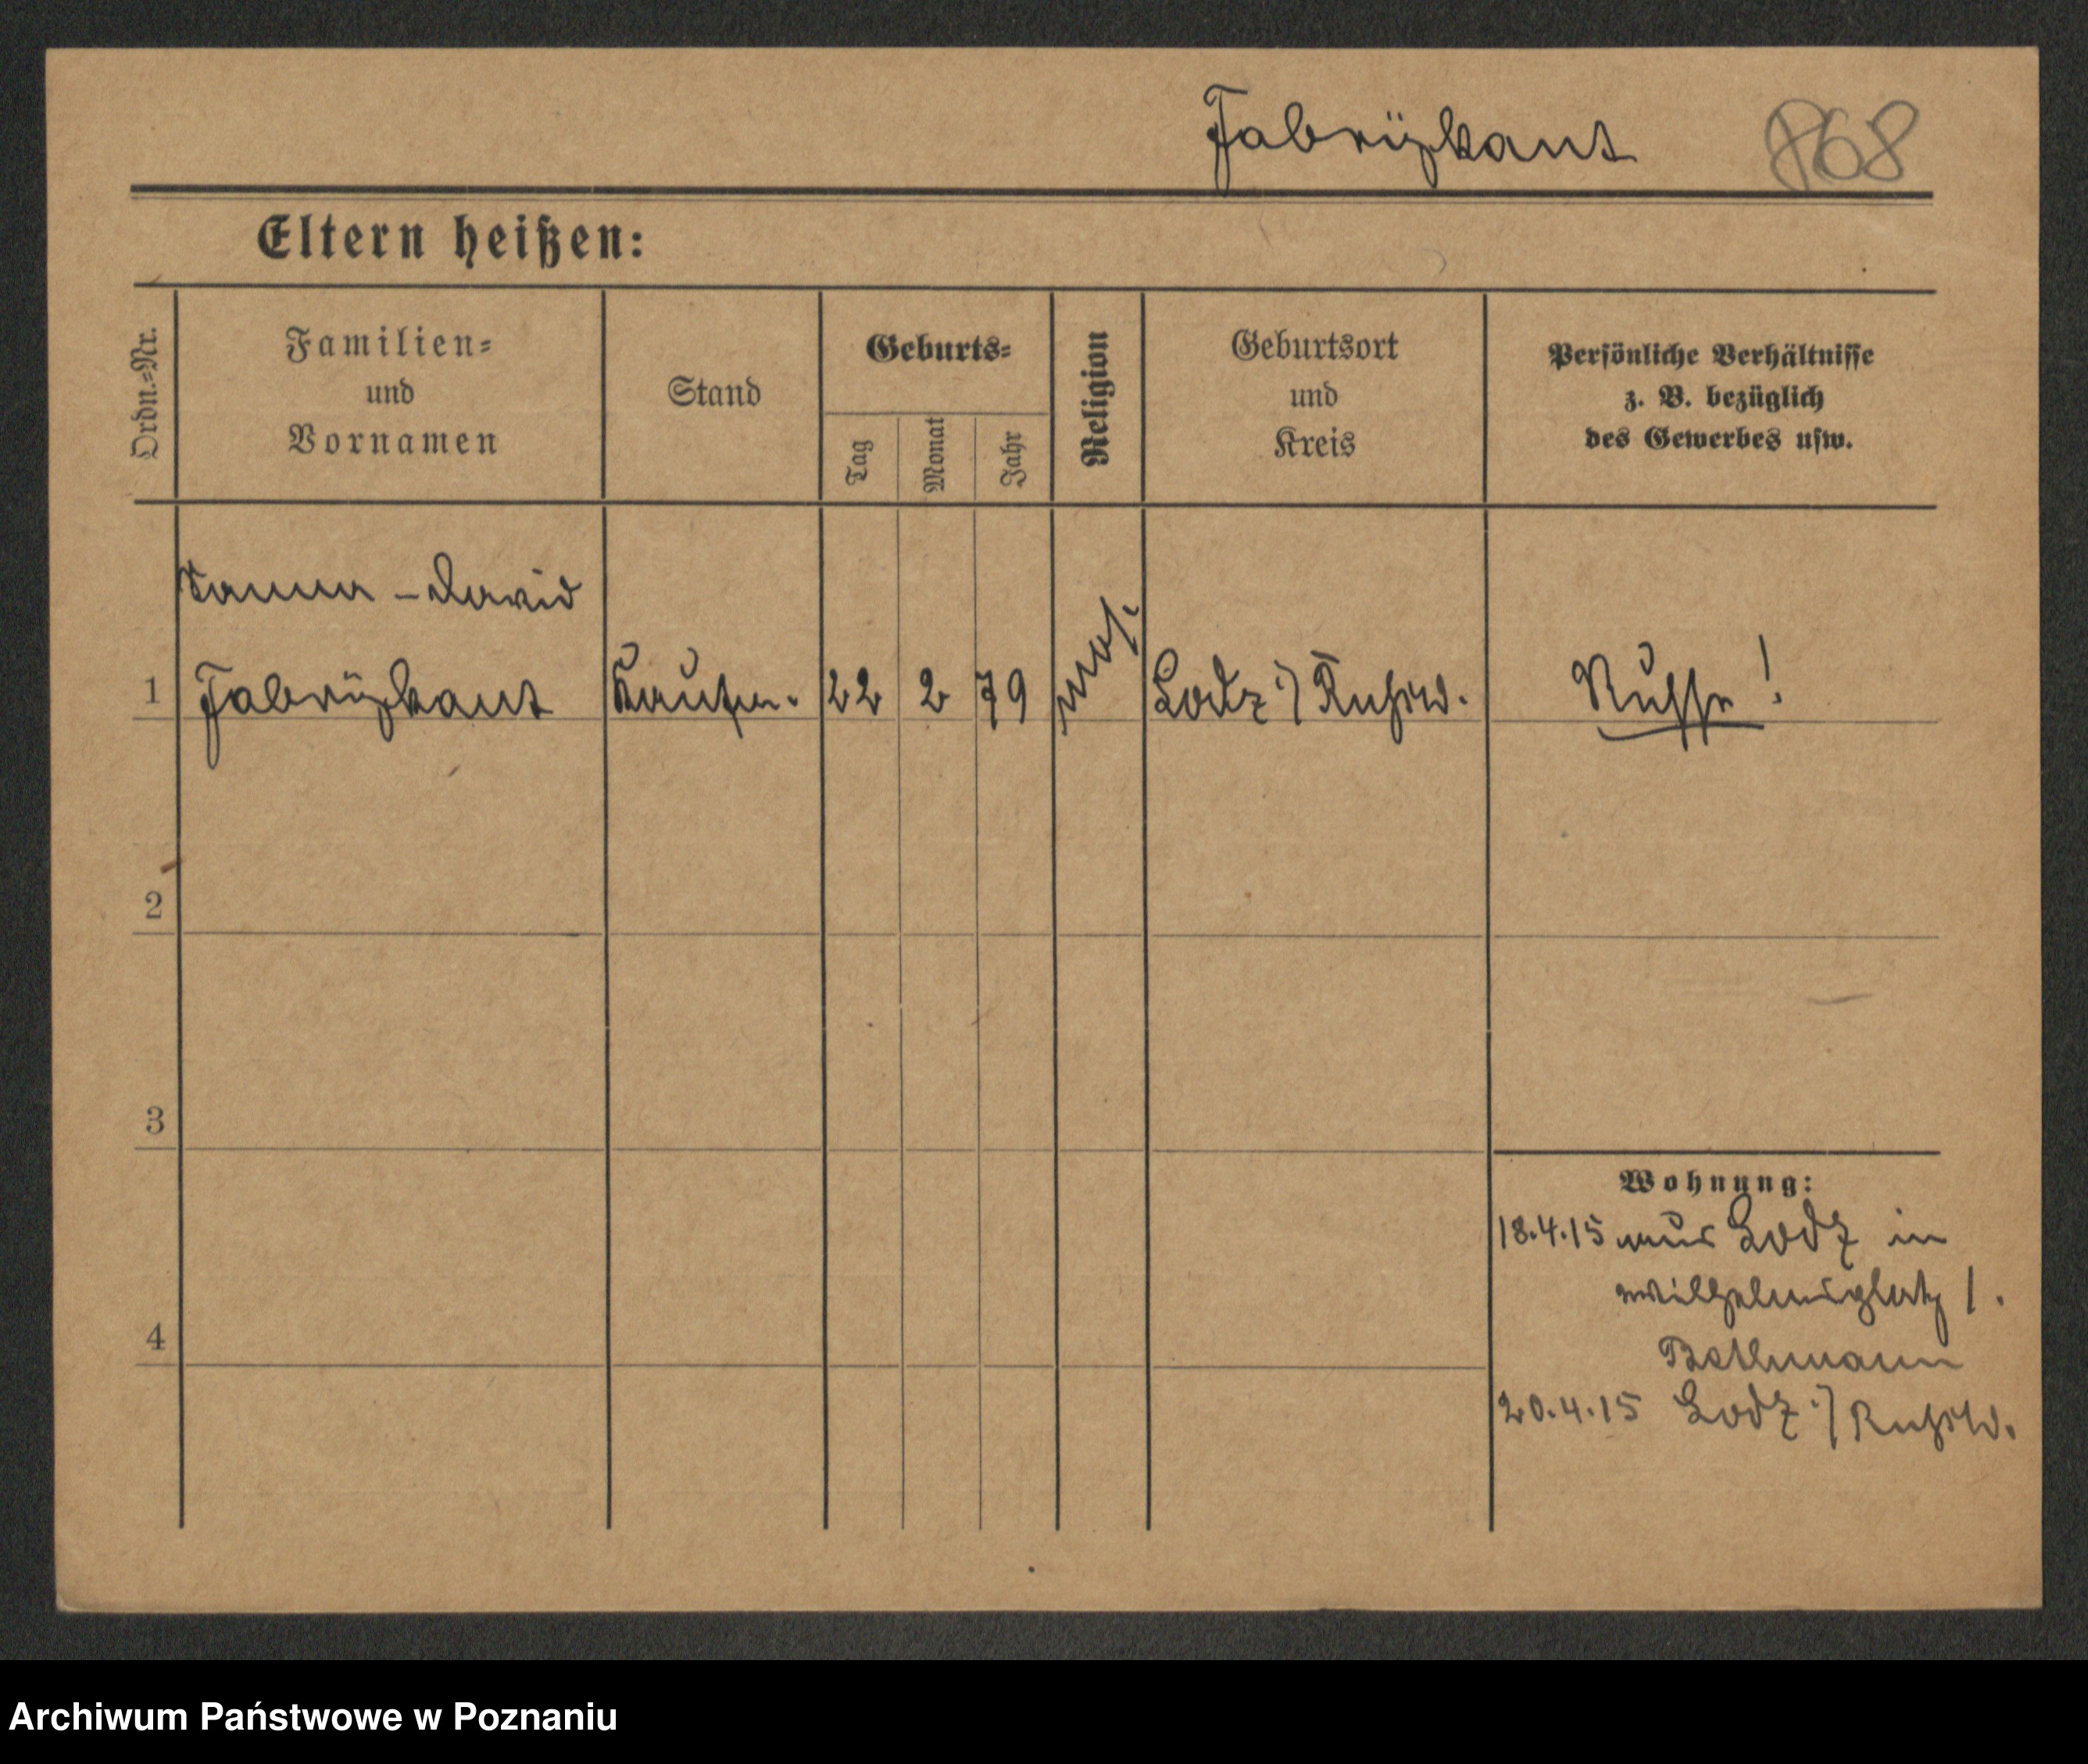 Fabrÿkant 868
Eltern heißen:
Ordn.=Nr.
Familien=
und
Vornamen
Stand
Geburts=
Tag
Monat
Jahr
Religion
Geburtsort
und
Kreis
Persönliche Verhältnisse
z. B. bezüglich
des Gewerbes usw.
- David
1 Fabrÿkant Kaufm. 22 2 79 mos. Lodz i/ Rußld. Russe!
2
3
4
Wohnung:
18.4.15 aus Lodz in
Wilhelmsplatz 1.
Bethmann
20.4.15 Lodz i/ Rußld.
Archiwum Państwowe w Poznaniu